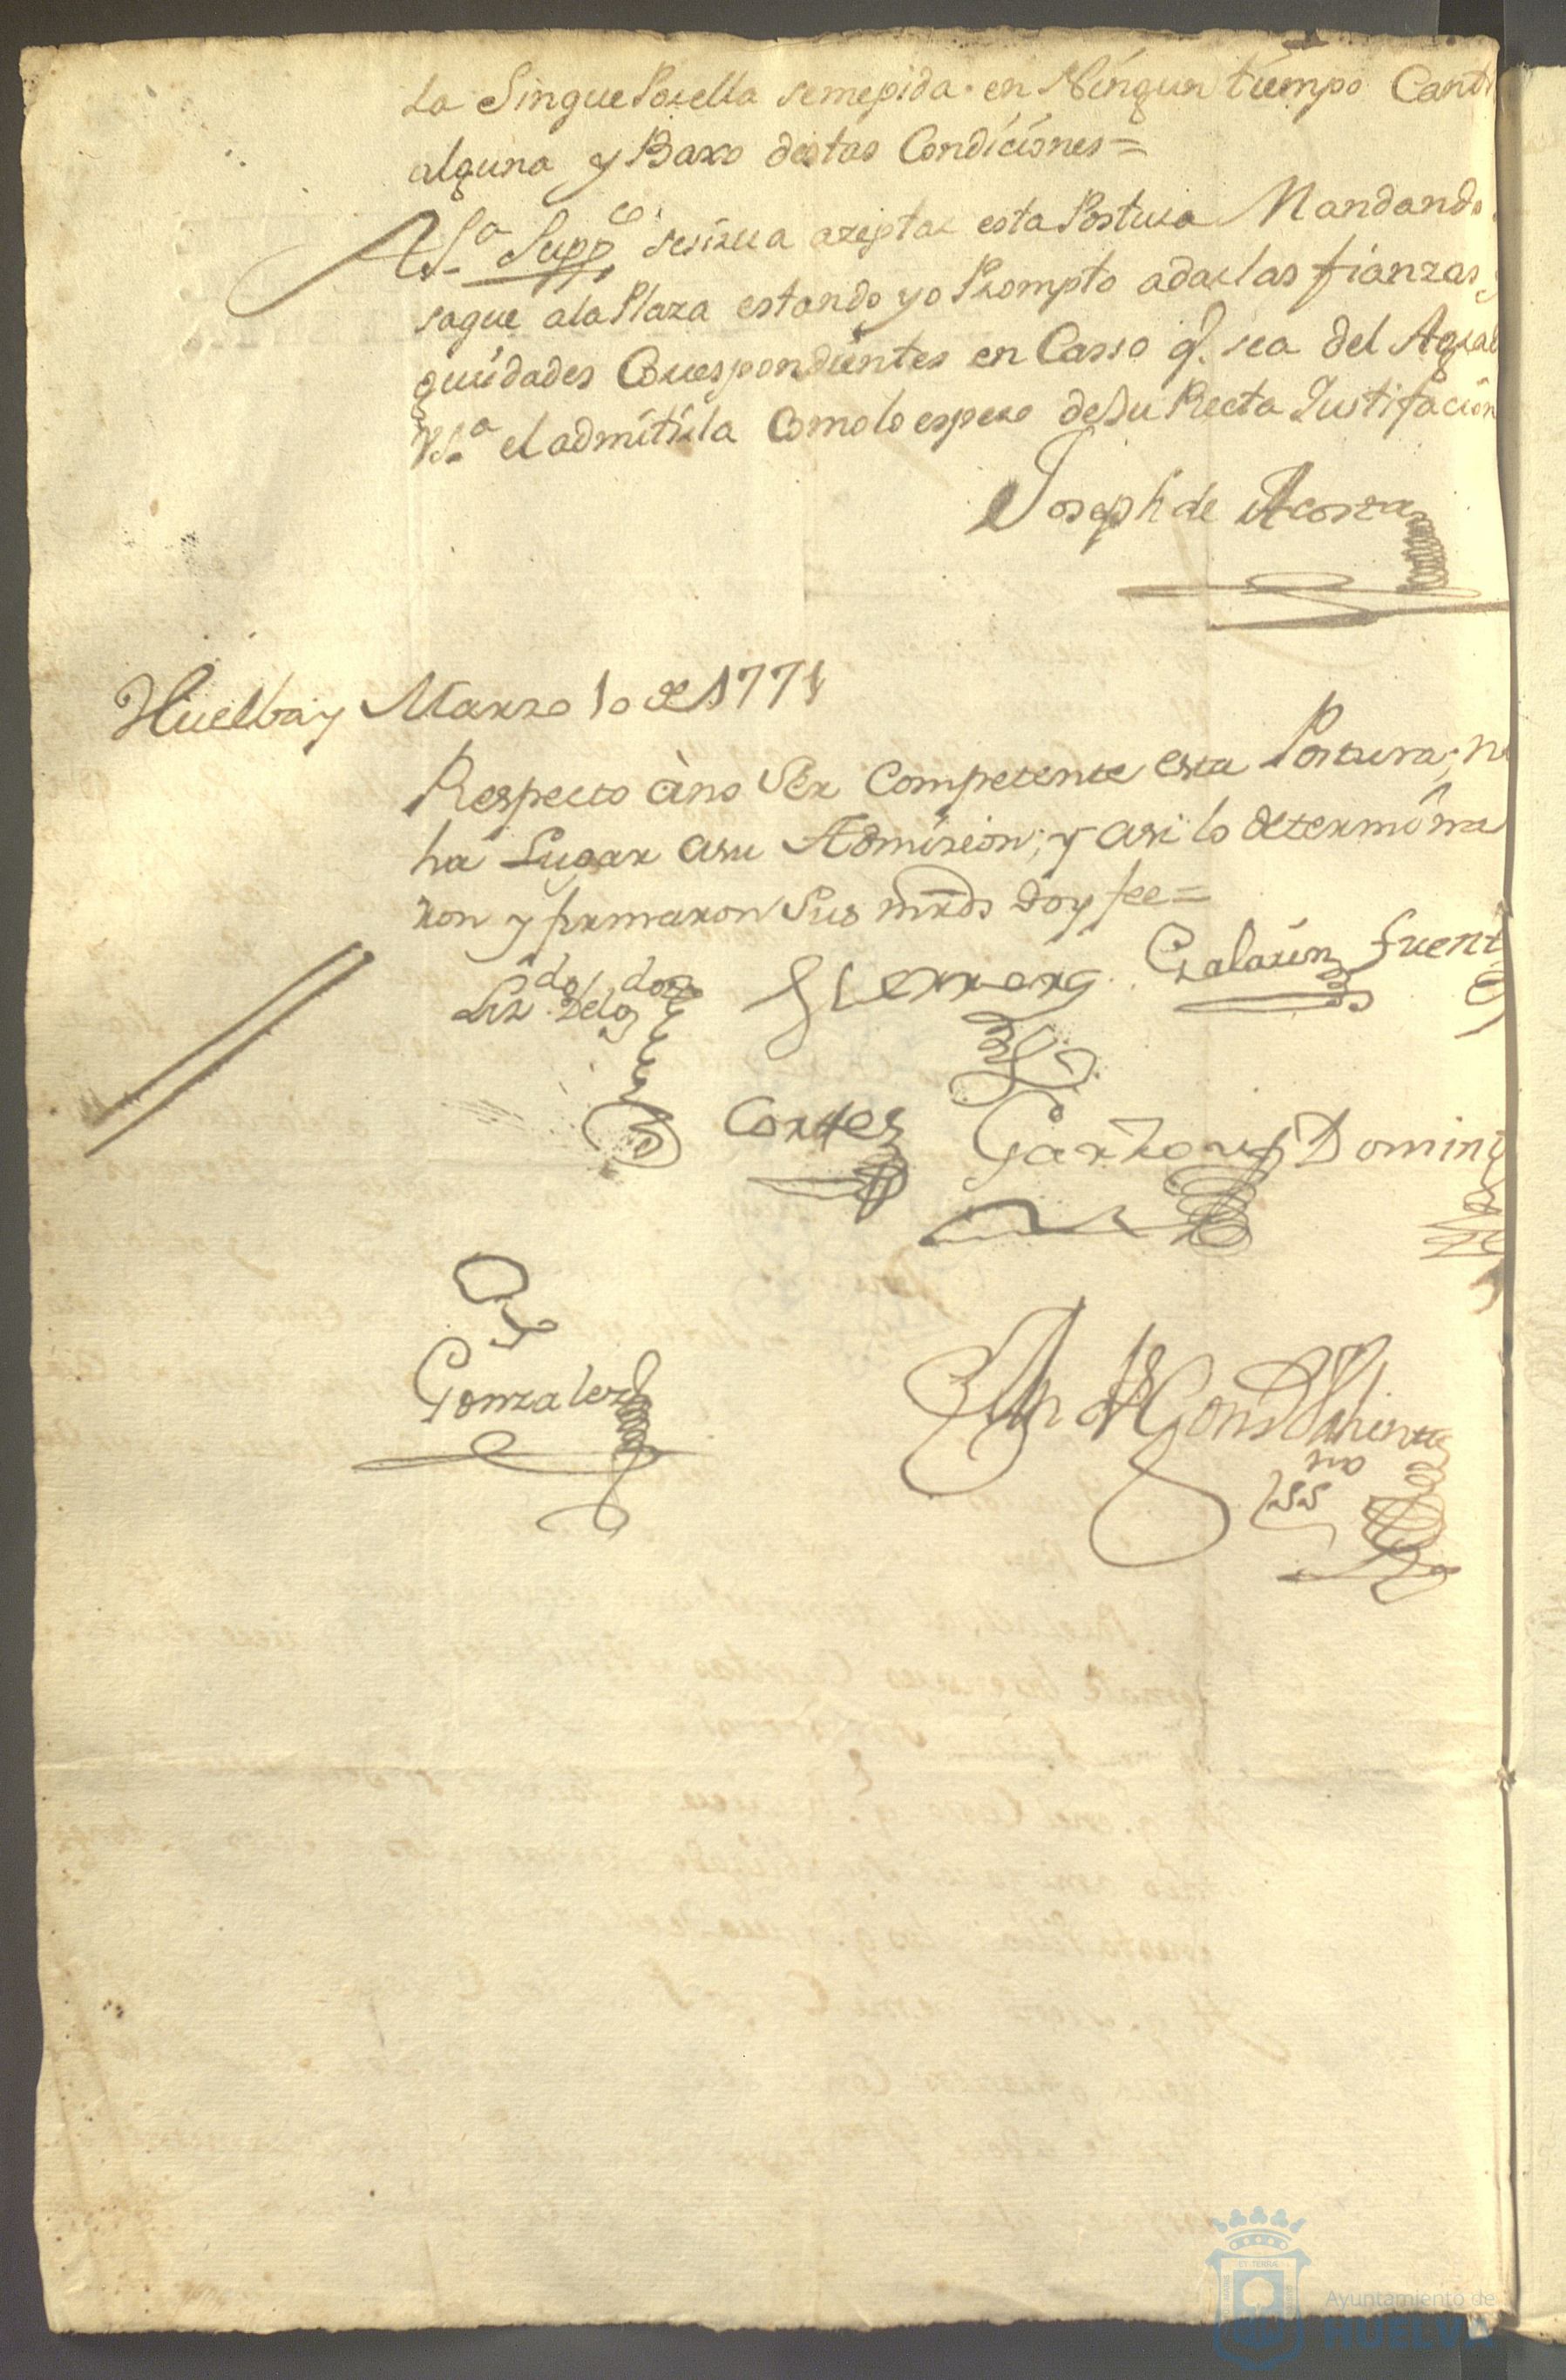 La Sin que Por ella se me pida en Ningun tiempo Cant
alguna y Baxo destas Condiciones=
A V.S.ª Supp.co se sirva azeptar esta Postura Mandando
saque a la Plaza estando yo Prompto a dar las fianzas
guridades Correspondientes en Casso q.e sea del Agrad
V.S.ª el admitirla Como lo espero de Su Recta Justifacion
Joseph de Acosta
Huelba y Marzo 10 de 1771
Respecto à no Ser Competente esta Postura; no
ha Lugar a su Admision; y asi lo determina
ron y firmaron Sus mrds doy fee=
Liz.do Delgdo Herrera Galavin fuent
Cortes Garzon Doming
Gonzalez